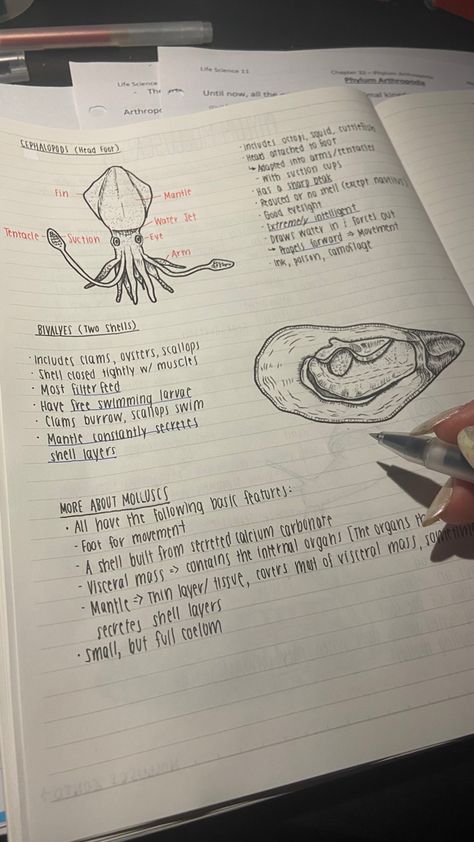 Life Science 11
Chapter 32 – Phylum Arthropoda
Phylum Arthropoda
Life Science
Until now, all the
Arthrop
CEPHALOPODS (Head Foot)
Fin
Mantle
Water Jet
Tentacle
Suction
Eye
Arm
· Includes octopi, squid, cuttlefish
· Head attached to foot
↳ Adapted into arms/tentacles
- With suction cups
· Has a sharp beak
· Reduced or no shell (except nautilus)
· Good eyesight
· Extremely intelligent
· Draws water in & forces out
↳ Propels forward => Movement
· Ink, poison, camoflage
BIVALVES (Two Shells)
· Includes clams, oysters, scallops
· Shell closed tightly w/ muscles
· Most filter feed
· Have free swimming larvae
· Clams burrow, scallops swim
· Mantle constantly secretes
shell layers
MORE ABOUT MOLLUSCS
· All have the following basic features:
- Foot for movement
- A shell built from secreted calcium carbonate
- Visceral mass => contains the internal organs [The organs th
- Mantle => Thin layer/tissue, covers most of visceral mass, sometim
secretes shell layers
· Small, but full coelom